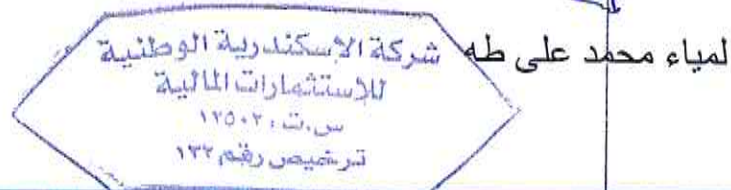 لمياء محمد على طه
شركة الإسكندرية الوطنية
للاستثمارات المالية
س.ت: ١٢٥٠٢
ترخيص رقم ١٣٢